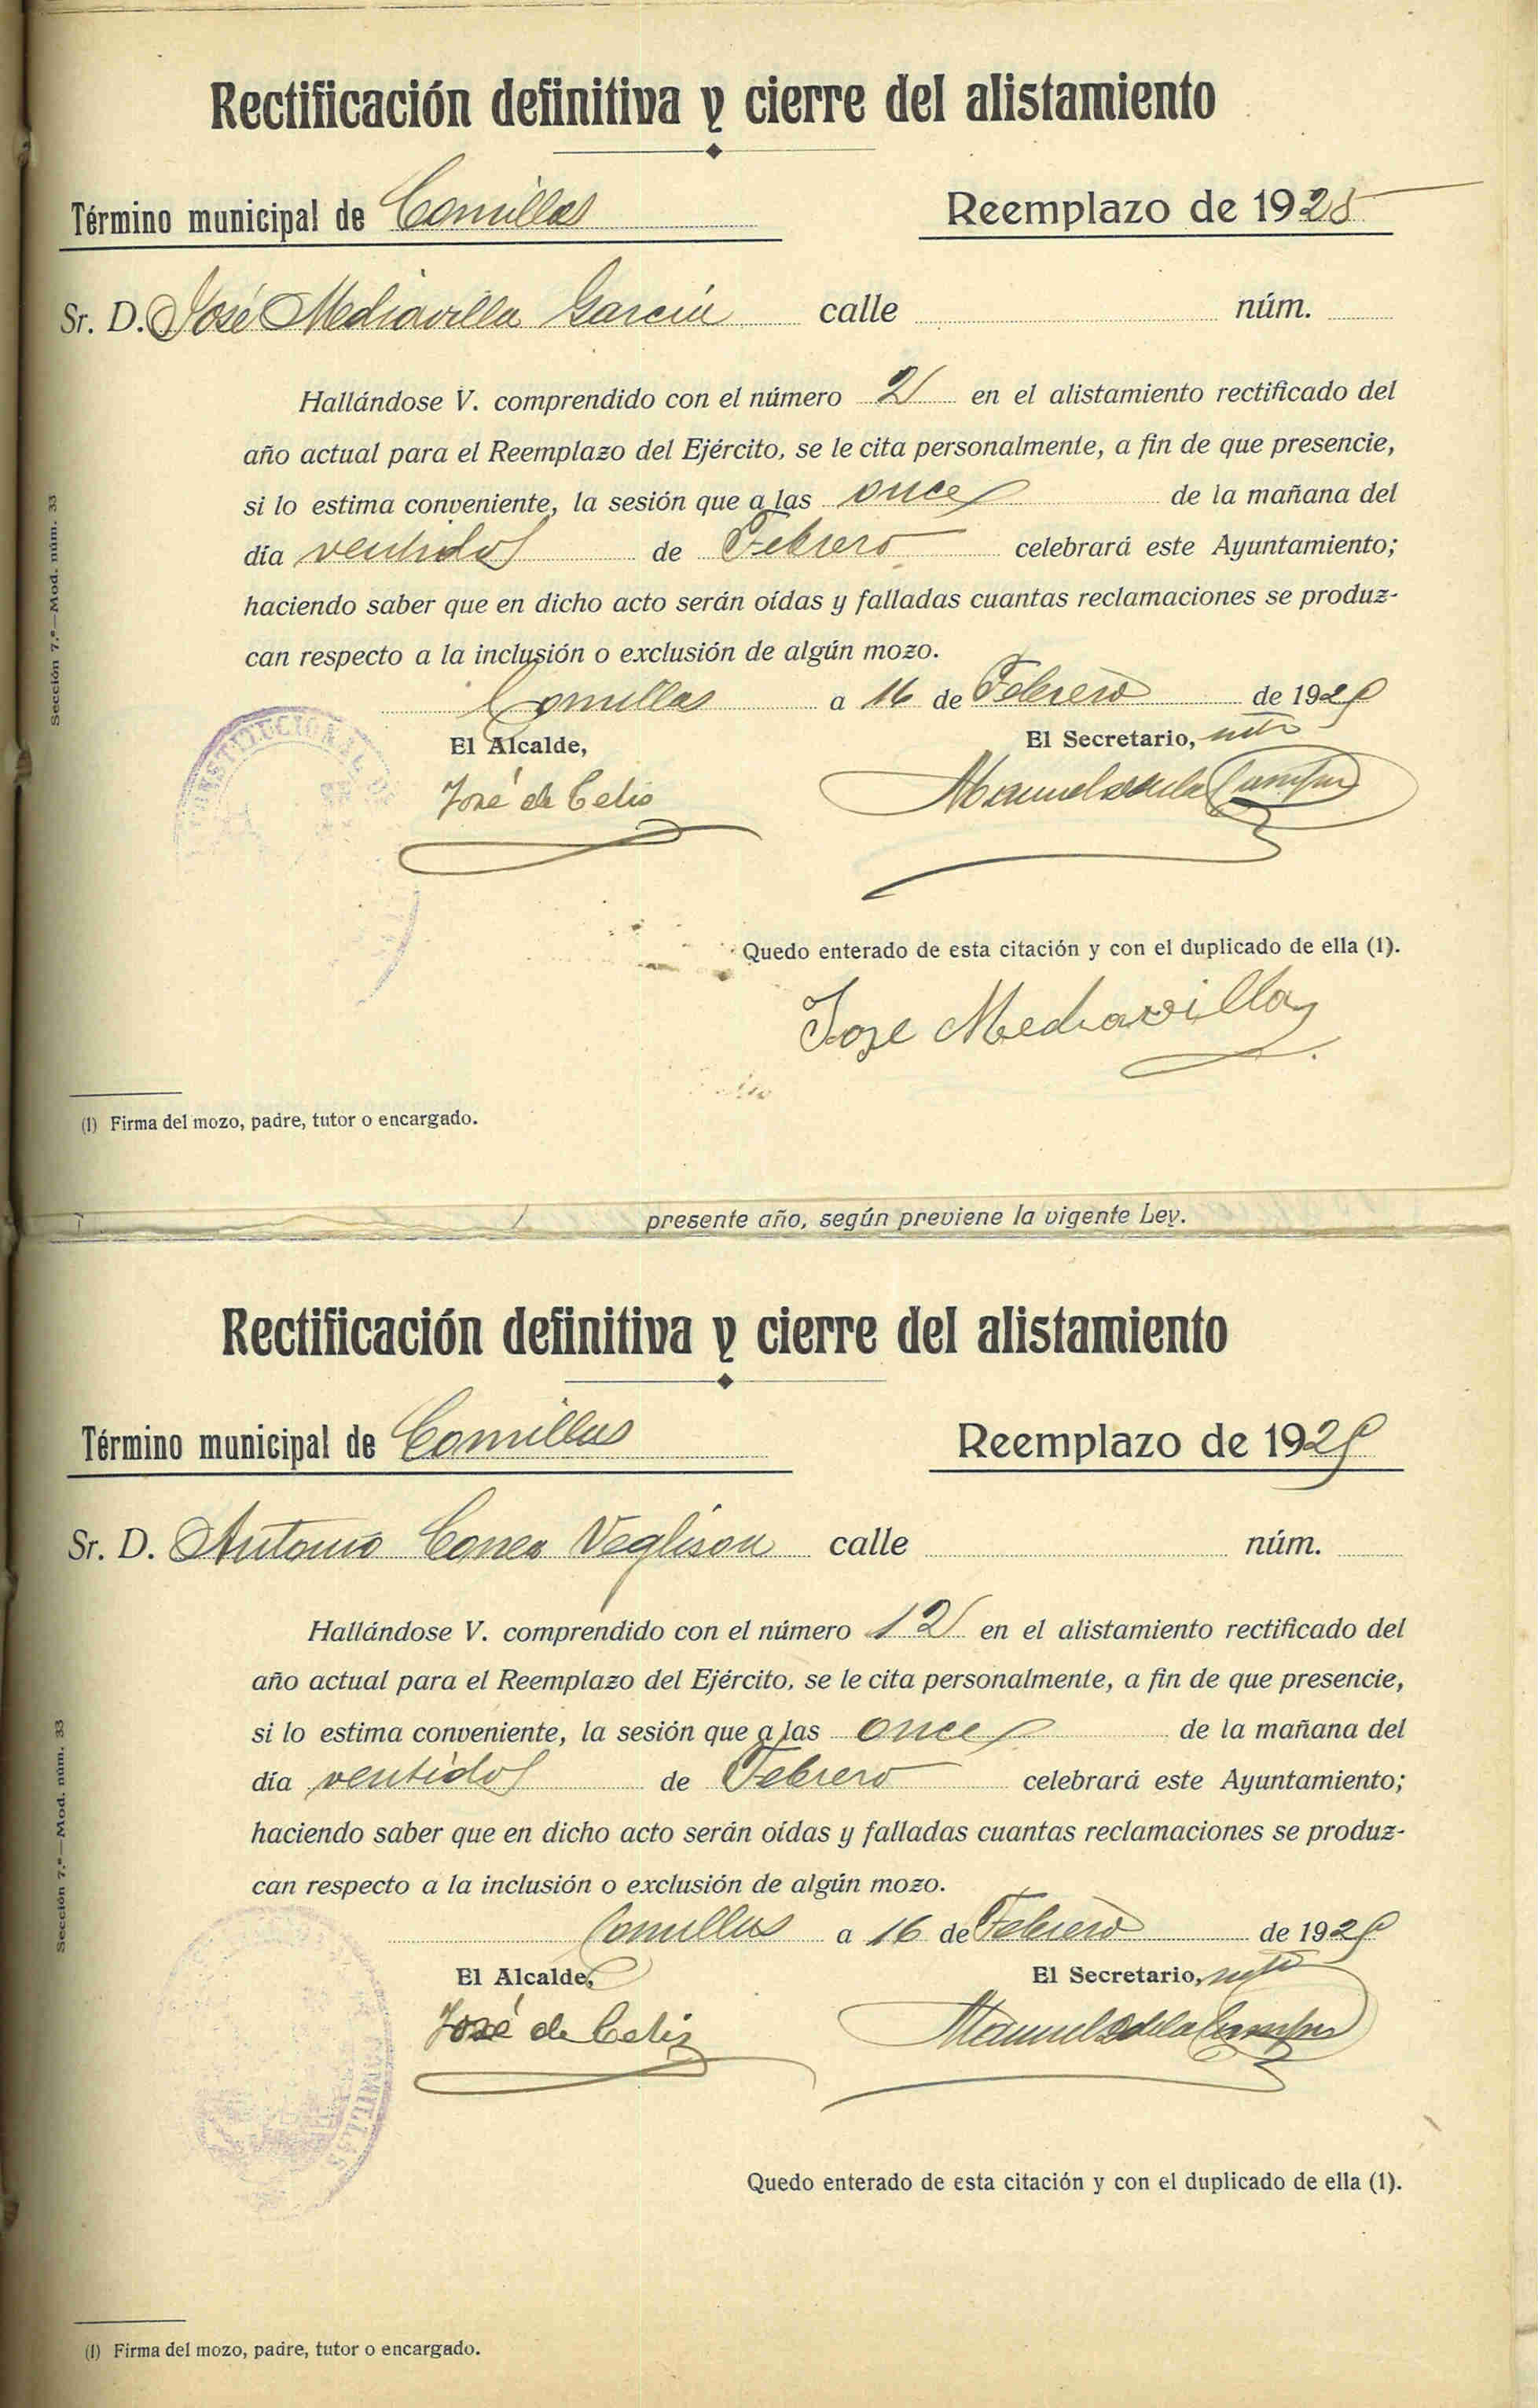 Rectificación definitiva y cierre del alistamiento
Término municipal de Comillas Reemplazo de 1925
Sr. D. José Mediavilla García calle núm.
Hallándose V. comprendido con el número 2 en el alistamiento rectificado del
año actual para el Reemplazo del Ejército, se le cita personalmente, a fin de que presencie,
si lo estima conveniente, la sesión que a las once de la mañana del
día ventidos de Febrero celebrará este Ayuntamiento;
haciendo saber que en dicho acto serán oídas y falladas cuantas reclamaciones se produz-
can respecto a la inclusión o exclusión de algún mozo.
Comillas a 16 de Febrero de 1925
El Alcalde, El Secretario,
José de Celis Manuel de la
Quedo enterado de esta citación y con el duplicado de ella (1).
Jose Mediavilla
(1) Firma del mozo, padre, tutor o encargado.
Sección 7.ª—Mod. núm. 33
presente año, según previene la vigente Ley.
Rectificación definitiva y cierre del alistamiento
Término municipal de Comillas Reemplazo de 1925
Sr. D. Antonio CorreaVeglison calle núm.
Hallándose V. comprendido con el número 12 en el alistamiento rectificado del
año actual para el Reemplazo del Ejército, se le cita personalmente, a fin de que presencie,
si lo estima conveniente, la sesión que a las once de la mañana del
día ventidos de Febrero celebrará este Ayuntamiento;
haciendo saber que en dicho acto serán oídas y falladas cuantas reclamaciones se produz-
can respecto a la inclusión o exclusión de algún mozo.
Comillas a 16 de Febrero de 1925
El Alcalde, El Secretario,
José de Celis Manuel de la
Quedo enterado de esta citación y con el duplicado de ella (1).
(1) Firma del mozo, padre, tutor o encargado.
Sección 7.ª—Mod. núm. 33